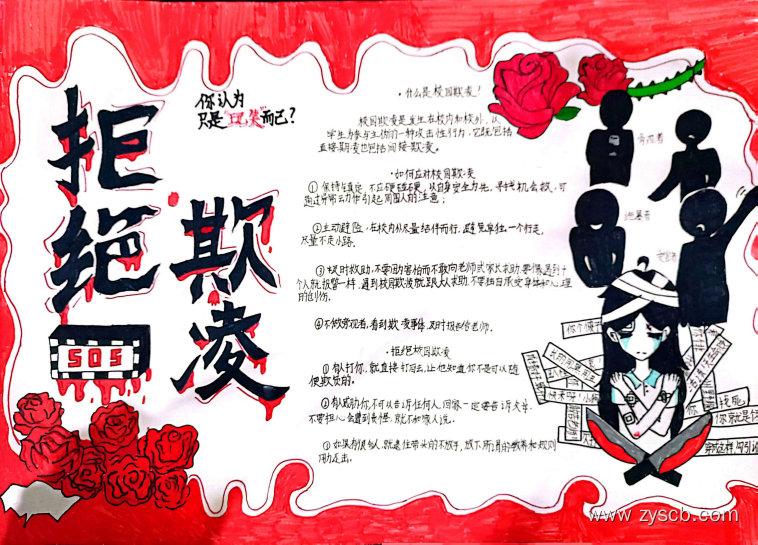 拒绝
欺凌
SOS
你认为
只是"玩笑"而已?
·什么是校园欺凌!
校园欺凌是发生在校内和校外,以
学生为参与主体的一种攻击性行为,它既包括
直接欺凌也包括间接欺凌。
·如何应对校园欺凌
①保持镇定,不应硬碰硬,以自身安全为先,寻找机会救,可
通过异常动作引起周围人的注意;
②主动避险,在校内外尽量结伴而行,避免单独一个行走,
尽量不走小路.
③及时救助,不要因为害怕而不敢向老师或家长求助,要像遇到
个人就报警一样,遇到校园欺凌就跟大人求助,不要独自承受身体和心理
的创伤.
④不做旁观者,看到欺凌事情,及时报告给老师.
·拒绝校园欺凌
①有人打你,就直接打回去,让他知道你是可以随
便欺负的.
②有威胁你,不可以告诉任何人,回家一定要告诉父母,
不要担心会遭到责怪,就不和家人说。
③如果有很多人,就逮住带头的不放手,放下所谓的教养和规则
用力还击.
旁观者
施暴者
受害者
你个傻子
www.zyscb.com